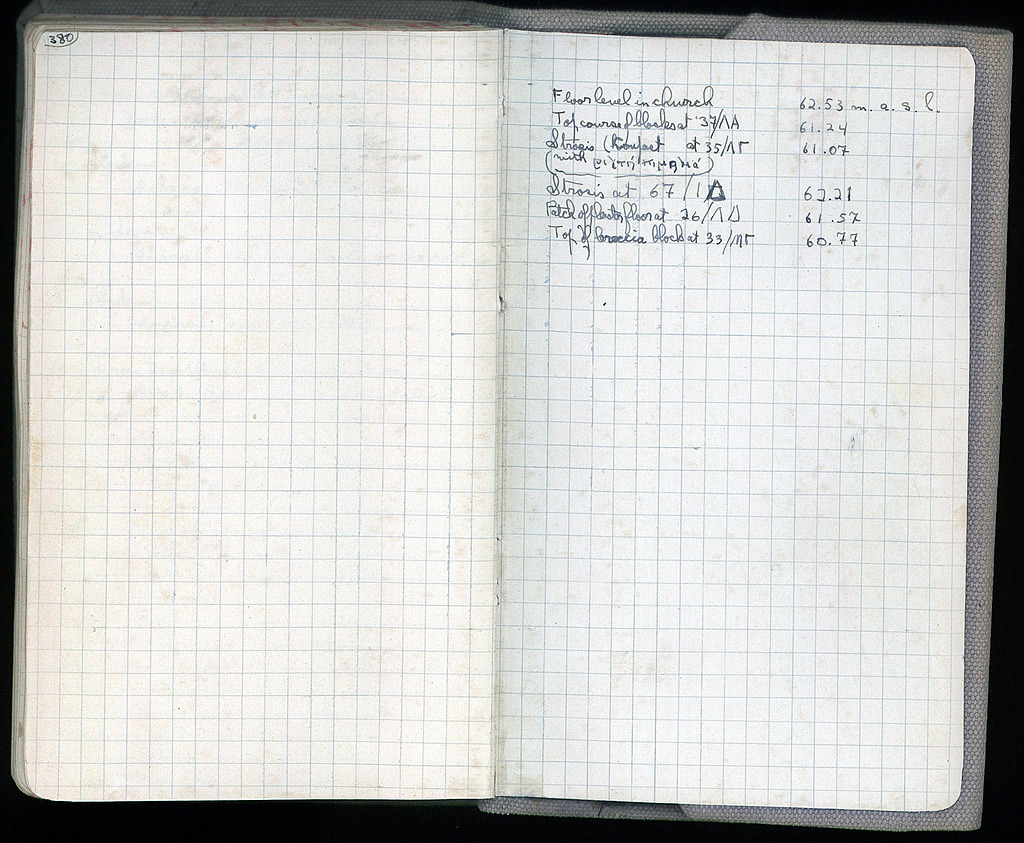 380
Floor level in church 62.53 m. a. s. l.
Top course of blocks at 37/ΛΑ 61.24
Strosis (Kompact at 35/ΛΓ 61.07
(with
Strosis at 67/ΙΔ 62.21
Patch of plaster floor at 26/ΛΔ 61.57
Top of breccia block at 33/ΜΓ 60.77